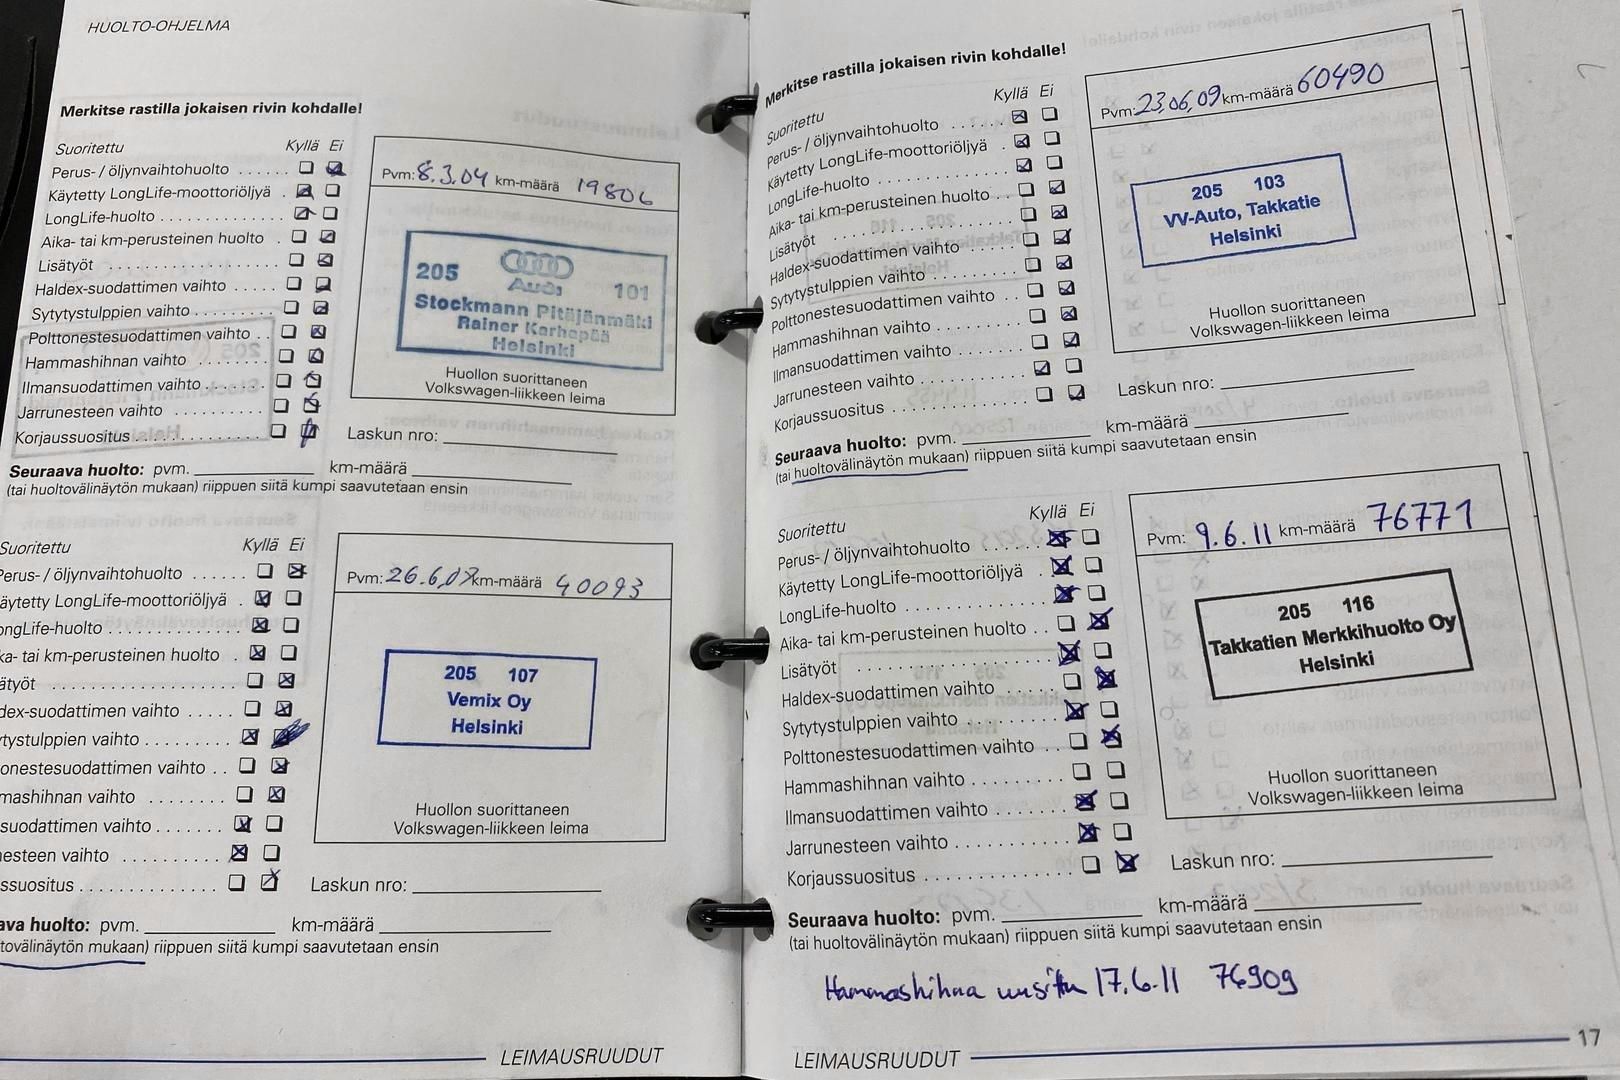 HUOLTO-OHJELMA
Merkitse rastilla jokaisen rivin kohdalle!
Suoritettu Kyllä Ei
Perus- / öljynvaihtohuolto ......
Käytetty LongLife-moottoriöljyä .
LongLife-huolto ................
Aika- tai km-perusteinen huolto .
Lisätyöt ......................
Haldex-suodattimen vaihto .....
Sytytystulppien vaihto .........
Polttonestesuodattimen vaihto ..
Hammashihnan vaihto ........
Ilmansuodattimen vaihto .......
Jarrunesteen vaihto ..........
Korjaussuositus ................
Pvm: 8.3.04 km-määrä 19806
205 Audi 101
Stockmann Pitäjänmäki
Rainer Karhepää
Helsinki
Huollon suorittaneen
Volkswagen-liikkeen leima
Laskun nro:
Seuraava huolto: pvm. km-määrä
(tai huoltovälinäytön mukaan) riippuen siitä kumpi saavutetaan ensin
Suoritettu Kyllä Ei
Perus- / öljynvaihtohuolto ......
äytetty LongLife-moottoriöljyä .
ongLife-huolto ................
ka- tai km-perusteinen huolto .
ätyöt ......................
dex-suodattimen vaihto .....
tytystulppien vaihto .........
onestesuodattimen vaihto ..
mashihnan vaihto ........
suodattimen vaihto .......
nesteen vaihto ..........
ssuositus ................
Pvm: 26.6.07 km-määrä 40093
205 107
Vemix Oy
Helsinki
Huollon suorittaneen
Volkswagen-liikkeen leima
Laskun nro:
ava huolto: pvm. km-määrä
tovälinäytön mukaan) riippuen siitä kumpi saavutetaan ensin
LEIMAUSRUUDUT
Merkitse rastilla jokaisen rivin kohdalle!
Suoritettu Kyllä Ei
Perus- / öljynvaihtohuolto ......
Käytetty LongLife-moottoriöljyä .
LongLife-huolto ................
Aika- tai km-perusteinen huolto ..
Lisätyöt ......................
Haldex-suodattimen vaihto .....
Sytytystulppien vaihto .........
Polttonestesuodattimen vaihto ..
Hammashihnan vaihto ........
Ilmansuodattimen vaihto .......
Jarrunesteen vaihto ..........
Korjaussuositus ................
Pvm: 23.06.09 km-määrä 60490
205 103
VV-Auto, Takkatie
Helsinki
Huollon suorittaneen
Volkswagen-liikkeen leima
Laskun nro:
Seuraava huolto: pvm. km-määrä
(tai huoltovälinäytön mukaan) riippuen siitä kumpi saavutetaan ensin
Suoritettu Kyllä Ei
Perus- / öljynvaihtohuolto ......
Käytetty LongLife-moottoriöljyä .
LongLife-huolto ................
Aika- tai km-perusteinen huolto ..
Lisätyöt ......................
Haldex-suodattimen vaihto .....
Sytytystulppien vaihto .........
Polttonestesuodattimen vaihto ..
Hammashihnan vaihto ........
Ilmansuodattimen vaihto .......
Jarrunesteen vaihto ..........
Korjaussuositus ................
Pvm: 9.6.11 km-määrä 76771
205 116
Takkatien Merkkihuolto Oy
Helsinki
Huollon suorittaneen
Volkswagen-liikkeen leima
Laskun nro:
Seuraava huolto: pvm. km-määrä
(tai huoltovälinäytön mukaan) riippuen siitä kumpi saavutetaan ensin
Hammashihna uusittu 17.6.11 76909
LEIMAUSRUUDUT
17